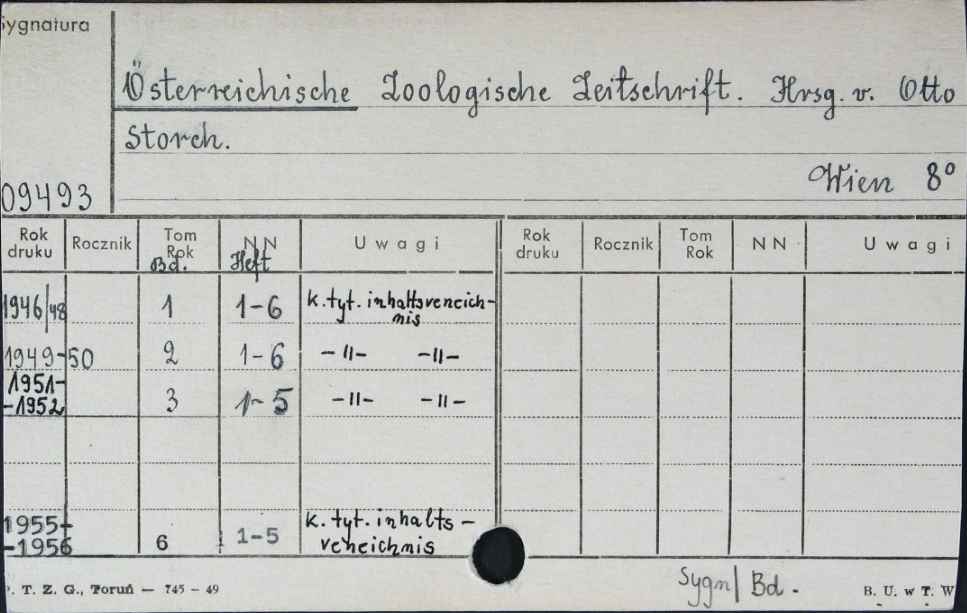 Sygnatura
Österreichische Zoologische Zeitschrift. Hrsg. v. Otto
Storch.
Wien 8°
09493
Rok druku Rocznik Tom Rok Bd. NN Heft Uwagi Rok druku Rocznik Tom Rok NN Uwagi
1946/48 1 1-6 k. tyt. inhaltsverzeich-
nis
1949-50 2 1-6 -"- -"-
1951-
-1952 3 1-5 -"- -"-
1955-
-1956 6 1-5 k. tyt. inhalts-
verzeichnis
P. T. Z. G., Toruń — 745 - 49
Sygn/ Bd.-
B. U. w T. W